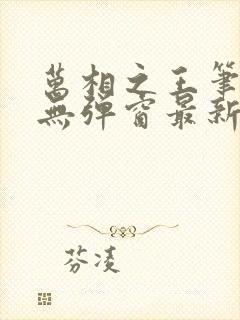 萬相之王筆
無彈窗最新
芬凌